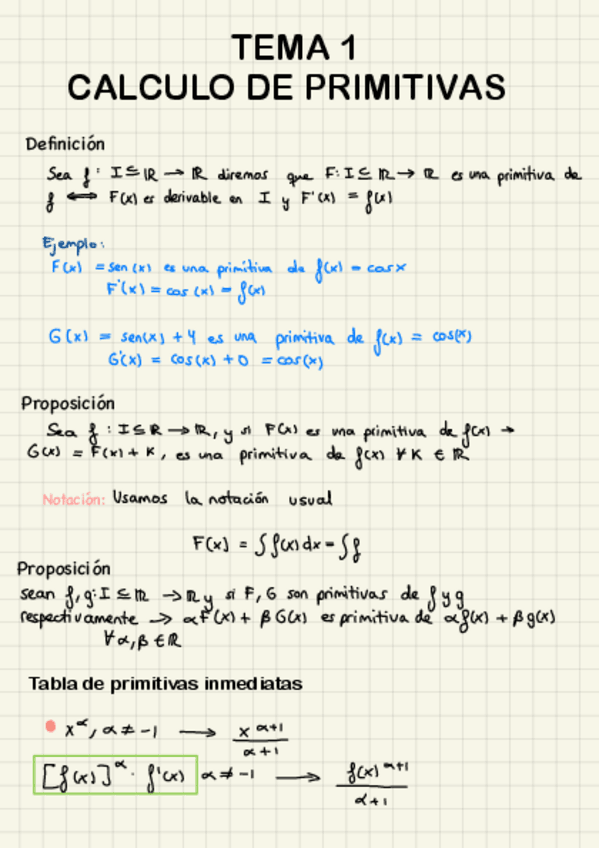 TEMA 1
CALCULO DE PRIMITIVAS
Definición
Sea f: I ⊆ ℝ → ℝ diremos que F: I ⊆ ℝ → ℝ es una primitiva de
f ⟺ F(x) es derivable en I y F'(x) = f(x)
Ejemplo:
F(x) = sen(x) es una primitiva de f(x) = cosx
F'(x) = cos(x) = f(x)
G(x) = sen(x) + 4 es una primitiva de f(x) = cos(x)
G'(x) = cos(x) + 0 = cos(x)
Proposición
Sea f: I ⊆ ℝ → ℝ, y si F(x) es una primitiva de f(x) →
G(x) = F(x) + K, es una primitiva de f(x) ∀ K ∈ ℝ
Notación: Usamos la notación usual
F(x) = ∫ f(x) dx = ∫ f
Proposición
sean f, g: I ⊆ ℝ → ℝ y si F, G son primitivas de f y g
respectivamente → αF(x) + βG(x) es primitiva de αf(x) + βg(x)
∀ α, β ∈ ℝ
Tabla de primitivas inmediatas
• x^α, α ≠ -1 → x^(α+1) / (α+1)
[f(x)]^α · f'(x) α ≠ -1 → f(x)^(α+1) / (α+1)